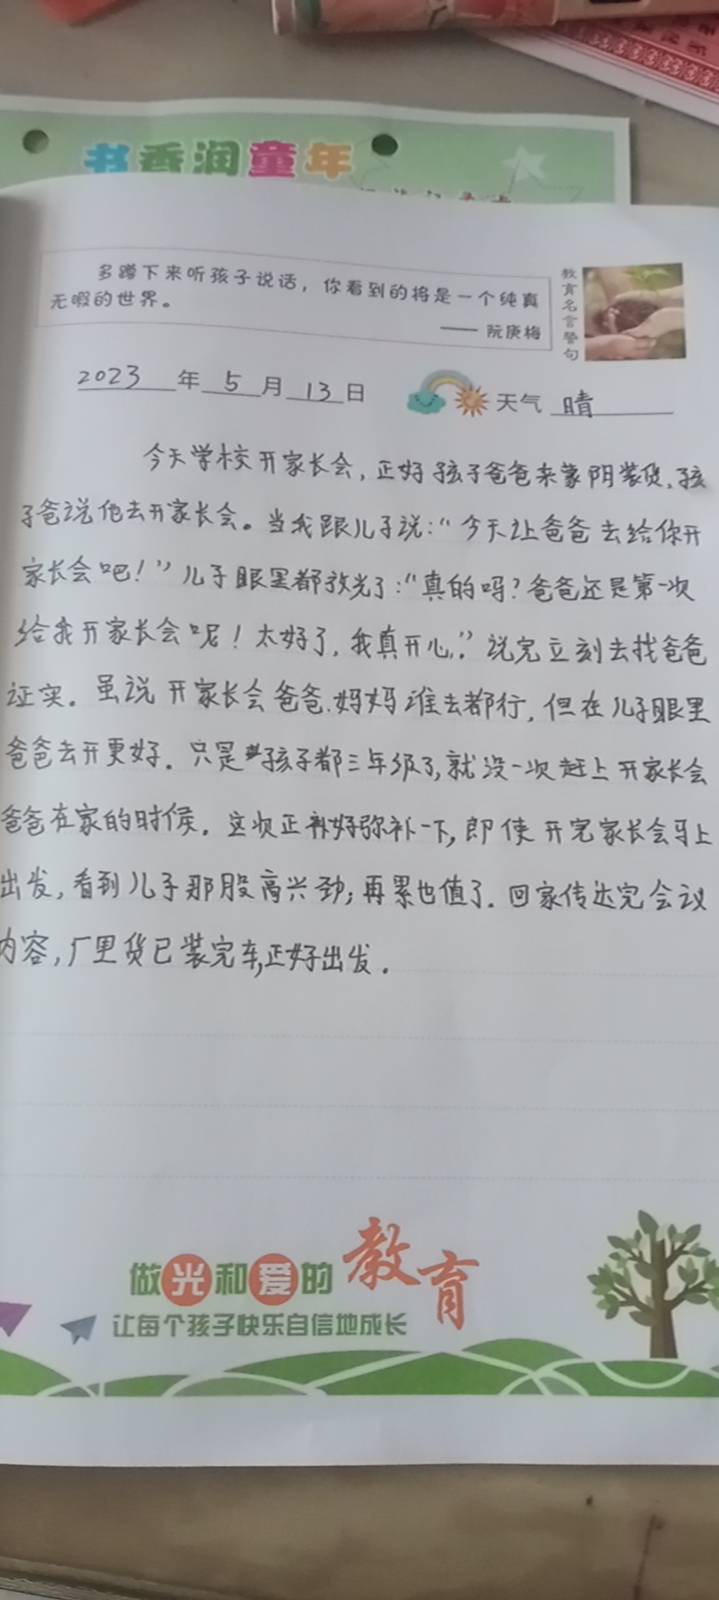 书香润童年
多蹲下来听孩子说话，你看到的将是一个纯真
无暇的世界。
—— 阮庚梅
教育名言警句
2023年5月13日 天气 晴
今天学校开家长会，正好孩子爸爸来蒙阴装货，孩
子爸说他去开家长会。当我跟儿子说：“今天让爸爸去给你开
家长会吧！”儿子眼里都放光了：“真的吗？爸爸还是第一次
给我开家长会呢！太好了，我真开心。”说完立刻去找爸爸
证实。虽说开家长会爸爸、妈妈谁去都行，但在儿子眼里
爸爸去开更好。只是孩子都三年级了，就没一次赶上开家长会
爸爸在家的时候。这次正好弥补一下，即使开完家长会马上
出发，看到儿子那股高兴劲；再累也值了。回家传达完会议
内容，厂里货已装完车，正好出发。
做光和爱的教育
让每个孩子快乐自信地成长